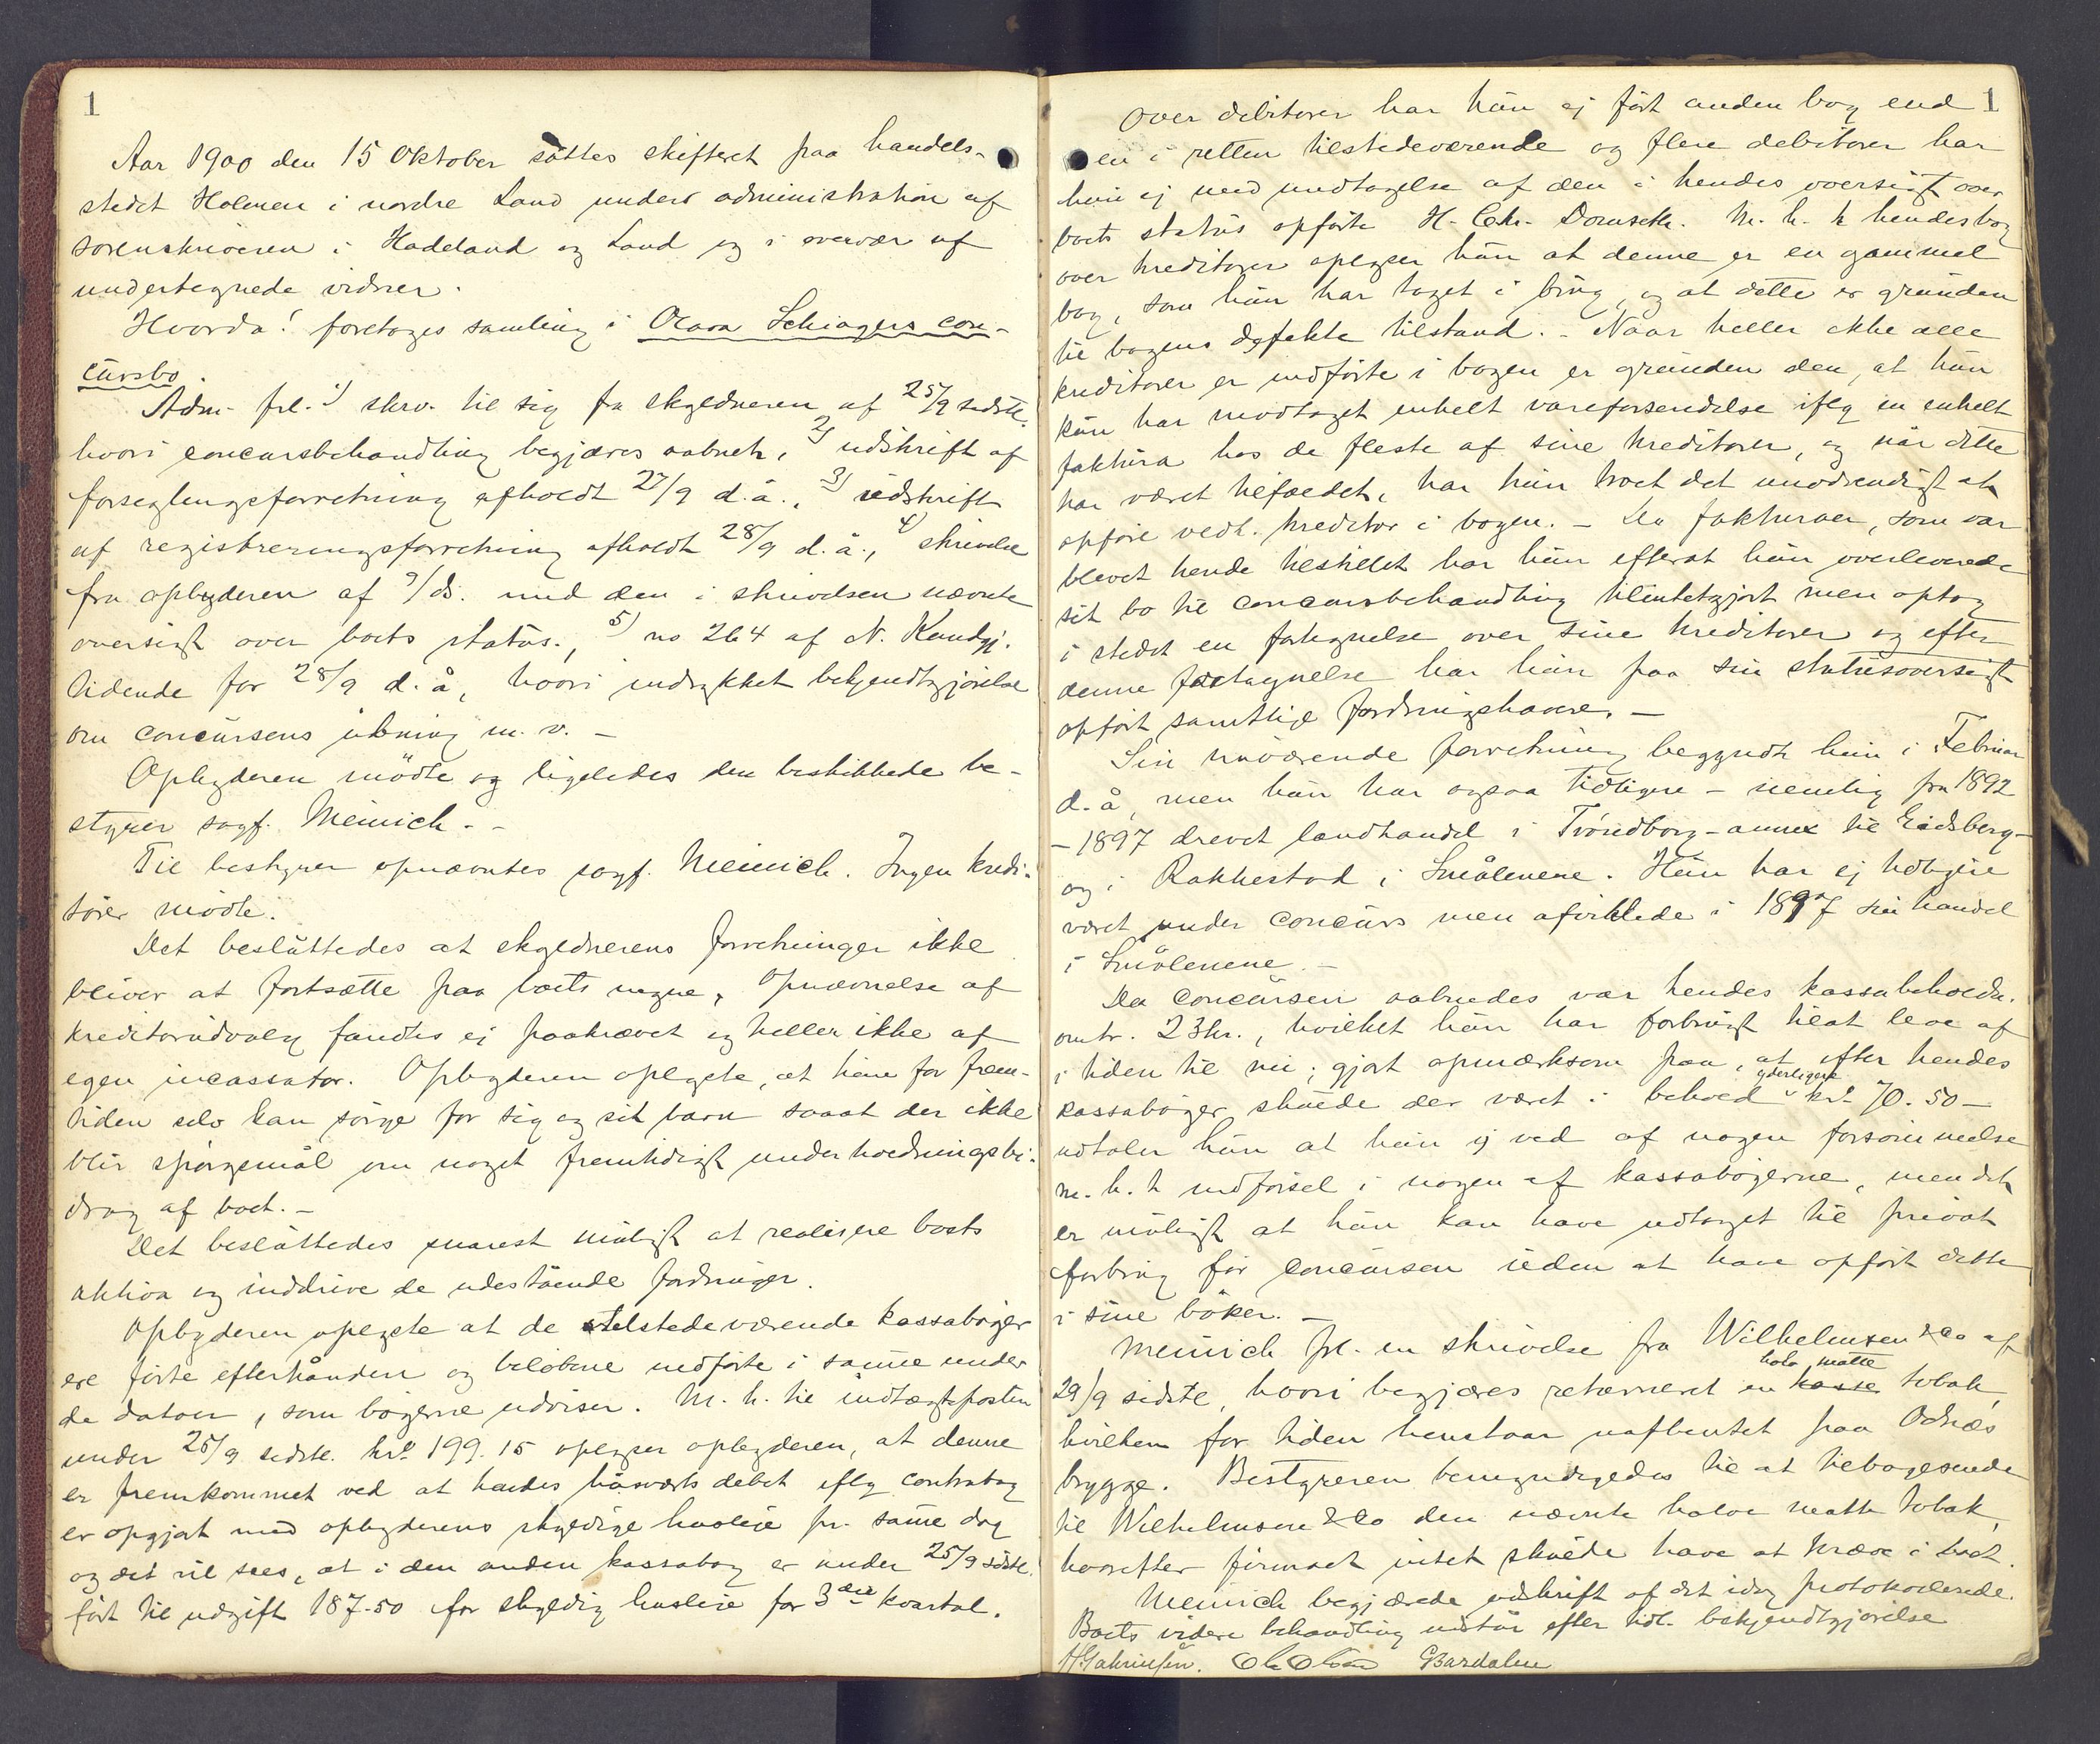 1
Aar 1900 den 15 Oktober sattes skifteret paa handels-
stedet Holmen i nordre Land under administration af
sorenskriveren i Hadeland og Land og i overvær af
undertegnede vidner.
Hvorda! foretoges samling i Olava Schiagers con-
cursbo.
Adm. frl. 1) skr. til sig fra skyldneren af 25/9 sidstl.
hvori concursbehandling begjæres aabnet, 2) udskrift af
forseglingsforretning afholdt 27/9 d.å., 3) udskrift
af registreringsforretning afholdt 28/9 d.å., 4) skrivelse
fra opbyderen af 9/ds. med den i skrivelsen nævnte
oversigt over boets status., 5) no 264 af N. Kundgj.
tidende for 28/9 d.å, hvori indrykket bekjendtgjørelse
om concursens åbning m.v. –
Opbyderen mödte og ligeledes den beskikkede be-
styrer sagf. Meinich. –
Til bestyrer opnævntes sagf. Meinich. Ingen kredi-
torer mödte.
Det besluttedes at skyldnerens forretninger ikke
bliver at fortsætte paa boets regne, Opnævnelse af
kreditorudvalg fandtes ej paakrævet og heller ikke af
egen incassator. Opbyderen oplyste, at hun for frem-
tiden selv kan sörge for sig og sit barn saaat der ikke
blir spörgsmål om noget fremtidigt underholdningsbi-
drag af boet. –
Det besluttedes snarest muligt at realisere boets
aktiva og inddrive de udestående fordringer.
Opbyderen oplyste at de tilstedeværende kassaböger
ere förte efterhånden og belöbene indförte i samme under
de datoer, som bögerne udviser. M.h. til indtægtsposten
under 25/9 sidstl. kr. 199.15 oplyser opbyderen, at denne
er fremkommet ved at hendes husværts debet iflg contrabog
er opgjort med opbyderens skyldige husleie pr. samme dag
og det vil sees, at i den anden kassabog er under 25/9 sidstl.
fört til udgift 187.50 for skyldig husleie for 3die kvartal.
1
Over debitorer har hun ej fört anden bog end
en i retten tilstedeværende og flere debitorer har
hun ej med undtagelse af den i hendes oversigt over
boets status opförte H. Chr. Domseth. M.h.t hendes bog
over kreditorer oplyser hun at denne er en gammel
bog, som hun har taget i brug, og at dette er grunden
til bogens defekte tilstand. – Naar heller ikke alle
kreditorer er indförte i bogen er grunden den, at hun
kun har modtaget enkelt vareforsendelse iflg en enkelt
faktura hos de fleste af sine kreditorer, og når dette
har været tilfældet, har hun troet det unödvendigt at
opföre vedk. kreditor i bogen. – De fakturaer, som var
blevet hende tilstillet har hun efterat hun overleverede
sit bo til concursbehandling tilintetgjort men optog
i stedet en fortegnelse over sine kreditorer og efter
denne fortegnelse har hun paa sin statusoversigt
opfört samtlige fordringshavere. –
Sin nuværende forretning begyndte hun i Februar
d.å, men hun har ogsaa tidligere – nemlig fra 1892
– 1897 drevet landhandel i Tröndborg – annex til Eidsberg –
og i Rakkestad i Smålenene. Hun har ej tidligere
været under concurs men afviklede i 1897 sin handel
i Smålenene. –
Da concursen aabnedes var hendes kassabeholdn.
omtr. 23kr., hvilket hun har forbrugt tilat leve af
i tiden til nu; gjort opmærksom paa, at efter hendes
kassaböger skulde der været i behold yderligere kr. 70.50 –
udtaler hun at hun ej ved af nogen forsömmelse
m.h.t indförsel i nogen af kassabögerne, men det
er muligt at hun kan have udtaget til privat
forbrug för concursen uden at have opfört dette
i sine böker. –
Meinich frl. en skrivelse fra Wilhelmsen & Co af
29/9 sidstl, hvori begjæres returneret en kasse halv matte tobak,
hvilken for tiden henstaar uafhentet paa Odnæs
brygge. Bestyreren bemyndigedes til at tilbagesende
til Wilhelmsen & Co den nævnte halve matte tobak,
hvorefter firmaet intet skulde have at kræve i boet.
Meinich begjærede udskrift af det idag protokollerede.
Boets videre behandling udstår efter tidl. bekjendtgjørelse
Ole Olsen GBardalen